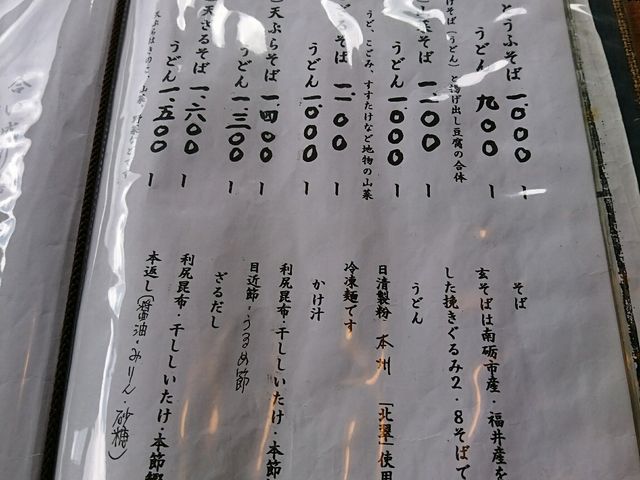 とうふそば 一、〇〇〇 ー
うどん 九〇〇 ー
けそば（うどん）と揚げ出し豆腐の合体
菜そば 一、一〇〇 ー
うどん 一、〇〇〇 ー
うど、こごみ、すすたけなど地物の山菜
るそば 一、一〇〇 ー
うどん 一、〇〇〇 ー
天ぷらそば 一、四〇〇 ー
うどん 一、三〇〇 ー
天ざるそば 一、六〇〇 ー
うどん 一、五〇〇 ー
天ぷらはきのこ、山菜、野菜
そば
玄そばは南砺市産・福井産を
した挽きぐるみ2・8そばで
うどん
日清製粉 本州 「北翠」使用
冷凍麺です
かけ汁
利尻昆布・干ししいたけ・本節
目近節・うるめ節
ざるだし
利尻昆布・干ししいたけ・本節
本返し（醤油・みりん・砂糖）